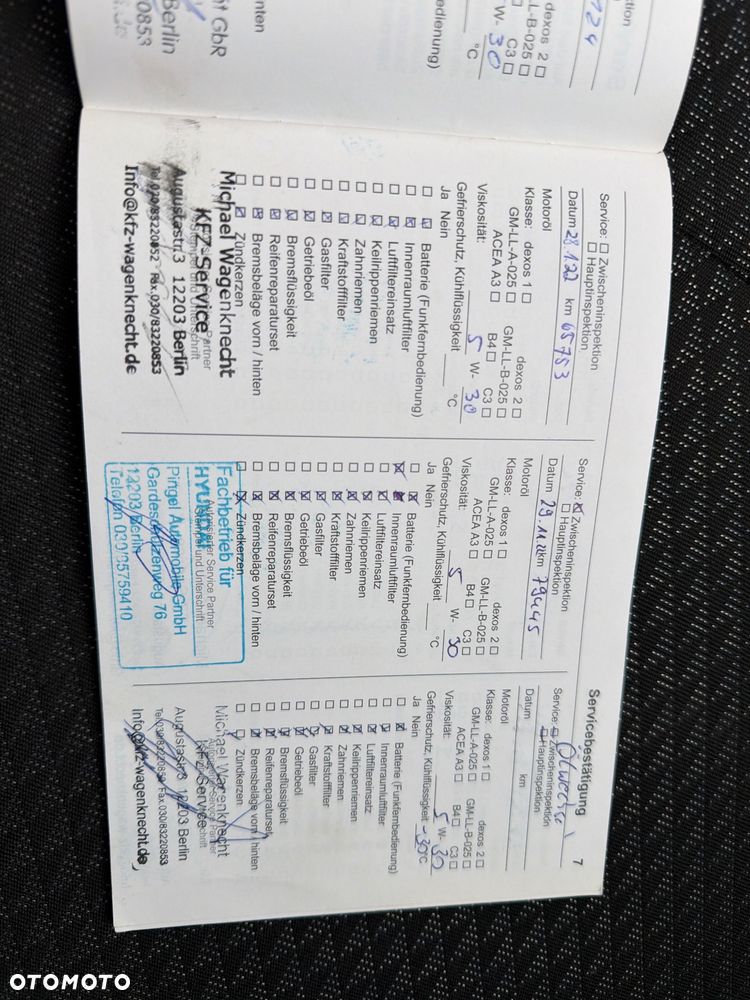 Servicebestätigung
7
Service: ☐ Zwischeninspektion
☐ Hauptinspektion
Datum 28.1.22 km 65753
Motoröl
Klasse: dexos 1 ☐ dexos 2 ☐
GM-LL-A-025 ☐ GM-LL-B-025 ☐
ACEA A3 ☐ B4 ☐ C3 ☐
Viskosität: 5 W- 30
Gefrierschutz, Kühlflüssigkeit °C
Ja Nein
Batterie (Funkfernbedienung)
Innenraumluftfilter
Luftfiltereinsatz
Keilrippenriemen
Zahnriemen
Kraftstofffilter
Gasfilter
Getriebeöl
Bremsflüssigkeit
Reifenreparaturset
Bremsbeläge vorn / hinten
Zündkerzen
Michael Wagenknecht
KFZ-Service
Augustastr.3 12203 Berlin
Tel.030/83220852 Fax.030/83220853
Info@kfz-wagenknecht.de
Service: ☒ Zwischeninspektion
☐ Hauptinspektion
Datum 29.11.22 km 79445
Motoröl
Klasse: dexos 1 ☐ dexos 2 ☐
GM-LL-A-025 ☐ GM-LL-B-025 ☐
ACEA A3 ☐ B4 ☐ C3 ☐
Viskosität: 5 W- 30
Gefrierschutz, Kühlflüssigkeit °C
Ja Nein
Batterie (Funkfernbedienung)
Innenraumluftfilter
Luftfiltereinsatz
Keilrippenriemen
Zahnriemen
Kraftstofffilter
Gasfilter
Getriebeöl
Bremsflüssigkeit
Reifenreparaturset
Bremsbeläge vorn / hinten
Zündkerzen
Service Partner
und Unterschrift
Fachbetrieb für
HYUNDAI
Pingel Automobile GmbH
Gardeschützenweg 76
12203 Berlin
Telefon 030/85759410
Ölwechsel
Service: ☐ Zwischeninspektion
☐ Hauptinspektion
Datum km
Motoröl
Klasse: dexos 1 ☐ dexos 2 ☐
GM-LL-A-025 ☐ GM-LL-B-025 ☐
ACEA A3 ☐ B4 ☐ C3 ☐
Viskosität: 5 W- 30
Gefrierschutz, Kühlflüssigkeit -30 °C
Ja Nein
Batterie (Funkfernbedienung)
Innenraumluftfilter
Luftfiltereinsatz
Keilrippenriemen
Zahnriemen
Kraftstofffilter
Gasfilter
Getriebeöl
Bremsflüssigkeit
Reifenreparaturset
Bremsbeläge vorn / hinten
Zündkerzen
Michael Wagenknecht
KFZ-Service
Augustastr.3 12203 Berlin
Info@kfz-wagenknecht.de
dexos 2 ☐
LL-B-025 ☐
C3 ☐
W- 30
°C
edienung)
nten
GbR
Berlin
OTOMOTO